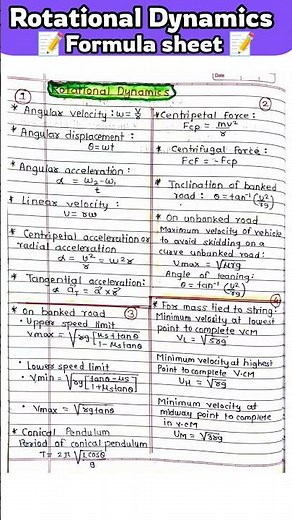 Rotational Dynamics
📝 Formula sheet 📝
Date
Rotational Dynamics
①
* Angular velocity : ω = v/r
* Angular displacement :
θ = ωt
* Angular acceleration :
α = ω₂ - ω₁ / t
* Linear velocity :
v = rω
* Centripetal acceleration or
radial acceleration
α = v²/r = ω²r
* Tangential acceleration :
a_T = α × r
②
* Centripetal Force :
Fcp = mv²/r
* Centrifugal Force :
FcF = -Fcp
* Inclination of banked
road : θ = tan⁻¹ (v²/rg)
* On unbanked road
Maximum velocity of vehicle
to avoid skidding on a
curve unbanked road :
Vmax = √μrg
Angle of leaning :
θ = tan⁻¹ (v²/rg)
③
* On banked road
• Upper speed limit
Vmax = √rg[μs + tanθ / 1 - μs tanθ]
• Lower speed limit
• Vmin = √rg[tanθ - μs / 1 + μs tanθ]
• Vmax = √rg tanθ
* Conical Pendulum
Period of conical pendulum
T = 2π √(L cosθ / g)
④
* For mass tied to string :
Minimum velocity at lowest
point to complete VCM
V_L = √5rg
Minimum velocity at highest
Point to complete V.CM
U_H = √rg
Minimum velocity at
midway point to complete
in V.CM
U_M = √3rg